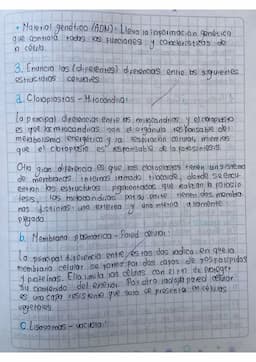 • Material genético (ADN): Lleva la información genética
que controla todas las funciones y características de
la célula.
3. Enuncia las (diferentes) diferencias entre las siguientes
estructuras celulares:
a. Cloroplastos - Mitocondria:
La principal diferencia entre las mitocondrias y el cloroplasto
es que las mitocondrias son el orgánulo responsable del
metabolismo energético y la respiración celular, mientras
que el cloroplasto es responsable de la fotosíntesis.
Otra gran diferencia es que los cloroplastos tienen un sistema
de membranas internas llamado tilacoide, donde se encu-
entran las estructuras pigmentadas que realizan la fotosín-
tesis, las mitocondrias por su parte tienen dos membra-
nas distintas una externa y una interna altamente
plegada.
b. Membrana plasmática - Pared celular:
La principal diferencia entre estas dos radica en que la
membrana celular se forma por dos capas de fosfolípidos
y proteínas. Ella limita las células con el fin de proteger
su contenido del exterior. Por otro lado la pared celular
es una capa resistente que solo se presenta en células
vegetales.
C. Lisosomas - vacuola: